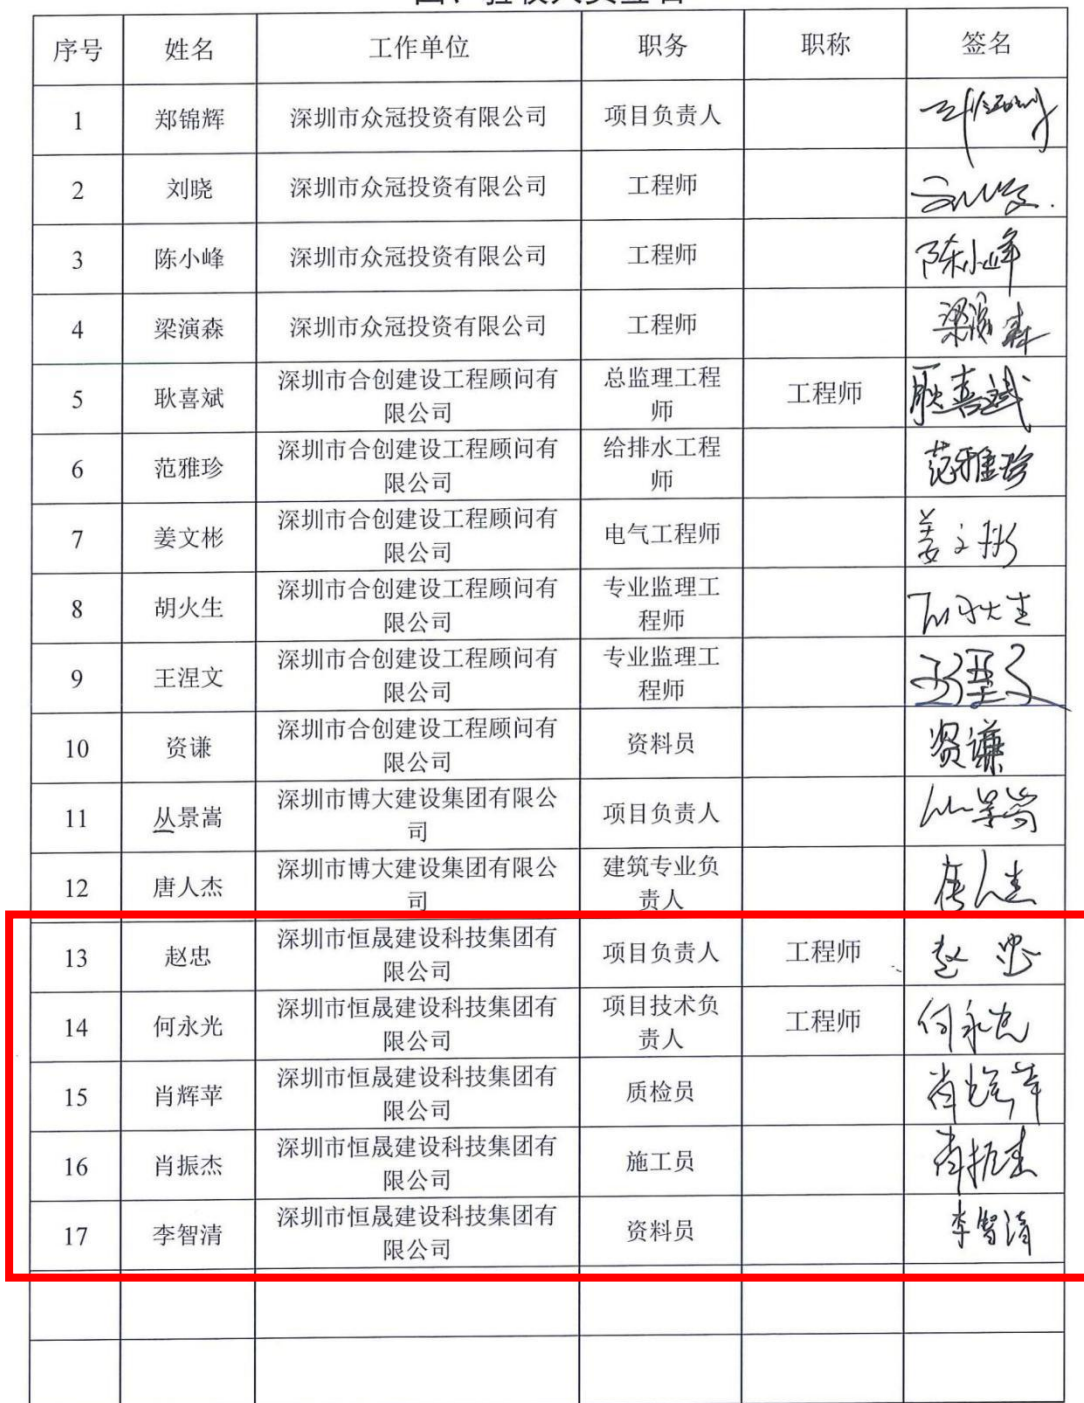 四、验收人员签名
序号 姓名 工作单位 职务 职称 签名
1 郑锦辉 深圳市众冠投资有限公司 项目负责人
2 刘晓 深圳市众冠投资有限公司 工程师
3 陈小峰 深圳市众冠投资有限公司 工程师 陈小峰
4 梁演森 深圳市众冠投资有限公司 工程师 梁演森
5 耿喜斌 深圳市合创建设工程顾问有
限公司 总监理工程
师 工程师 耿喜斌
6 范雅珍 深圳市合创建设工程顾问有
限公司 给排水工程
师 范雅珍
7 姜文彬 深圳市合创建设工程顾问有
限公司 电气工程师 姜文彬
8 胡火生 深圳市合创建设工程顾问有
限公司 专业监理工
程师 胡火生
9 王涅文 深圳市合创建设工程顾问有
限公司 专业监理工
程师
10 资谦 深圳市合创建设工程顾问有
限公司 资料员 资谦
11 丛景嵩 深圳市博大建设集团有限公
司 项目负责人 丛景嵩
12 唐人杰 深圳市博大建设集团有限公
司 建筑专业负
责人 唐人杰
13 赵忠 深圳市恒晟建设科技集团有
限公司 项目负责人 工程师 赵忠
14 何永光 深圳市恒晟建设科技集团有
限公司 项目技术负
责人 工程师 何永光
15 肖辉苹 深圳市恒晟建设科技集团有
限公司 质检员 肖辉苹
16 肖振杰 深圳市恒晟建设科技集团有
限公司 施工员 肖振杰
17 李智清 深圳市恒晟建设科技集团有
限公司 资料员 李智清